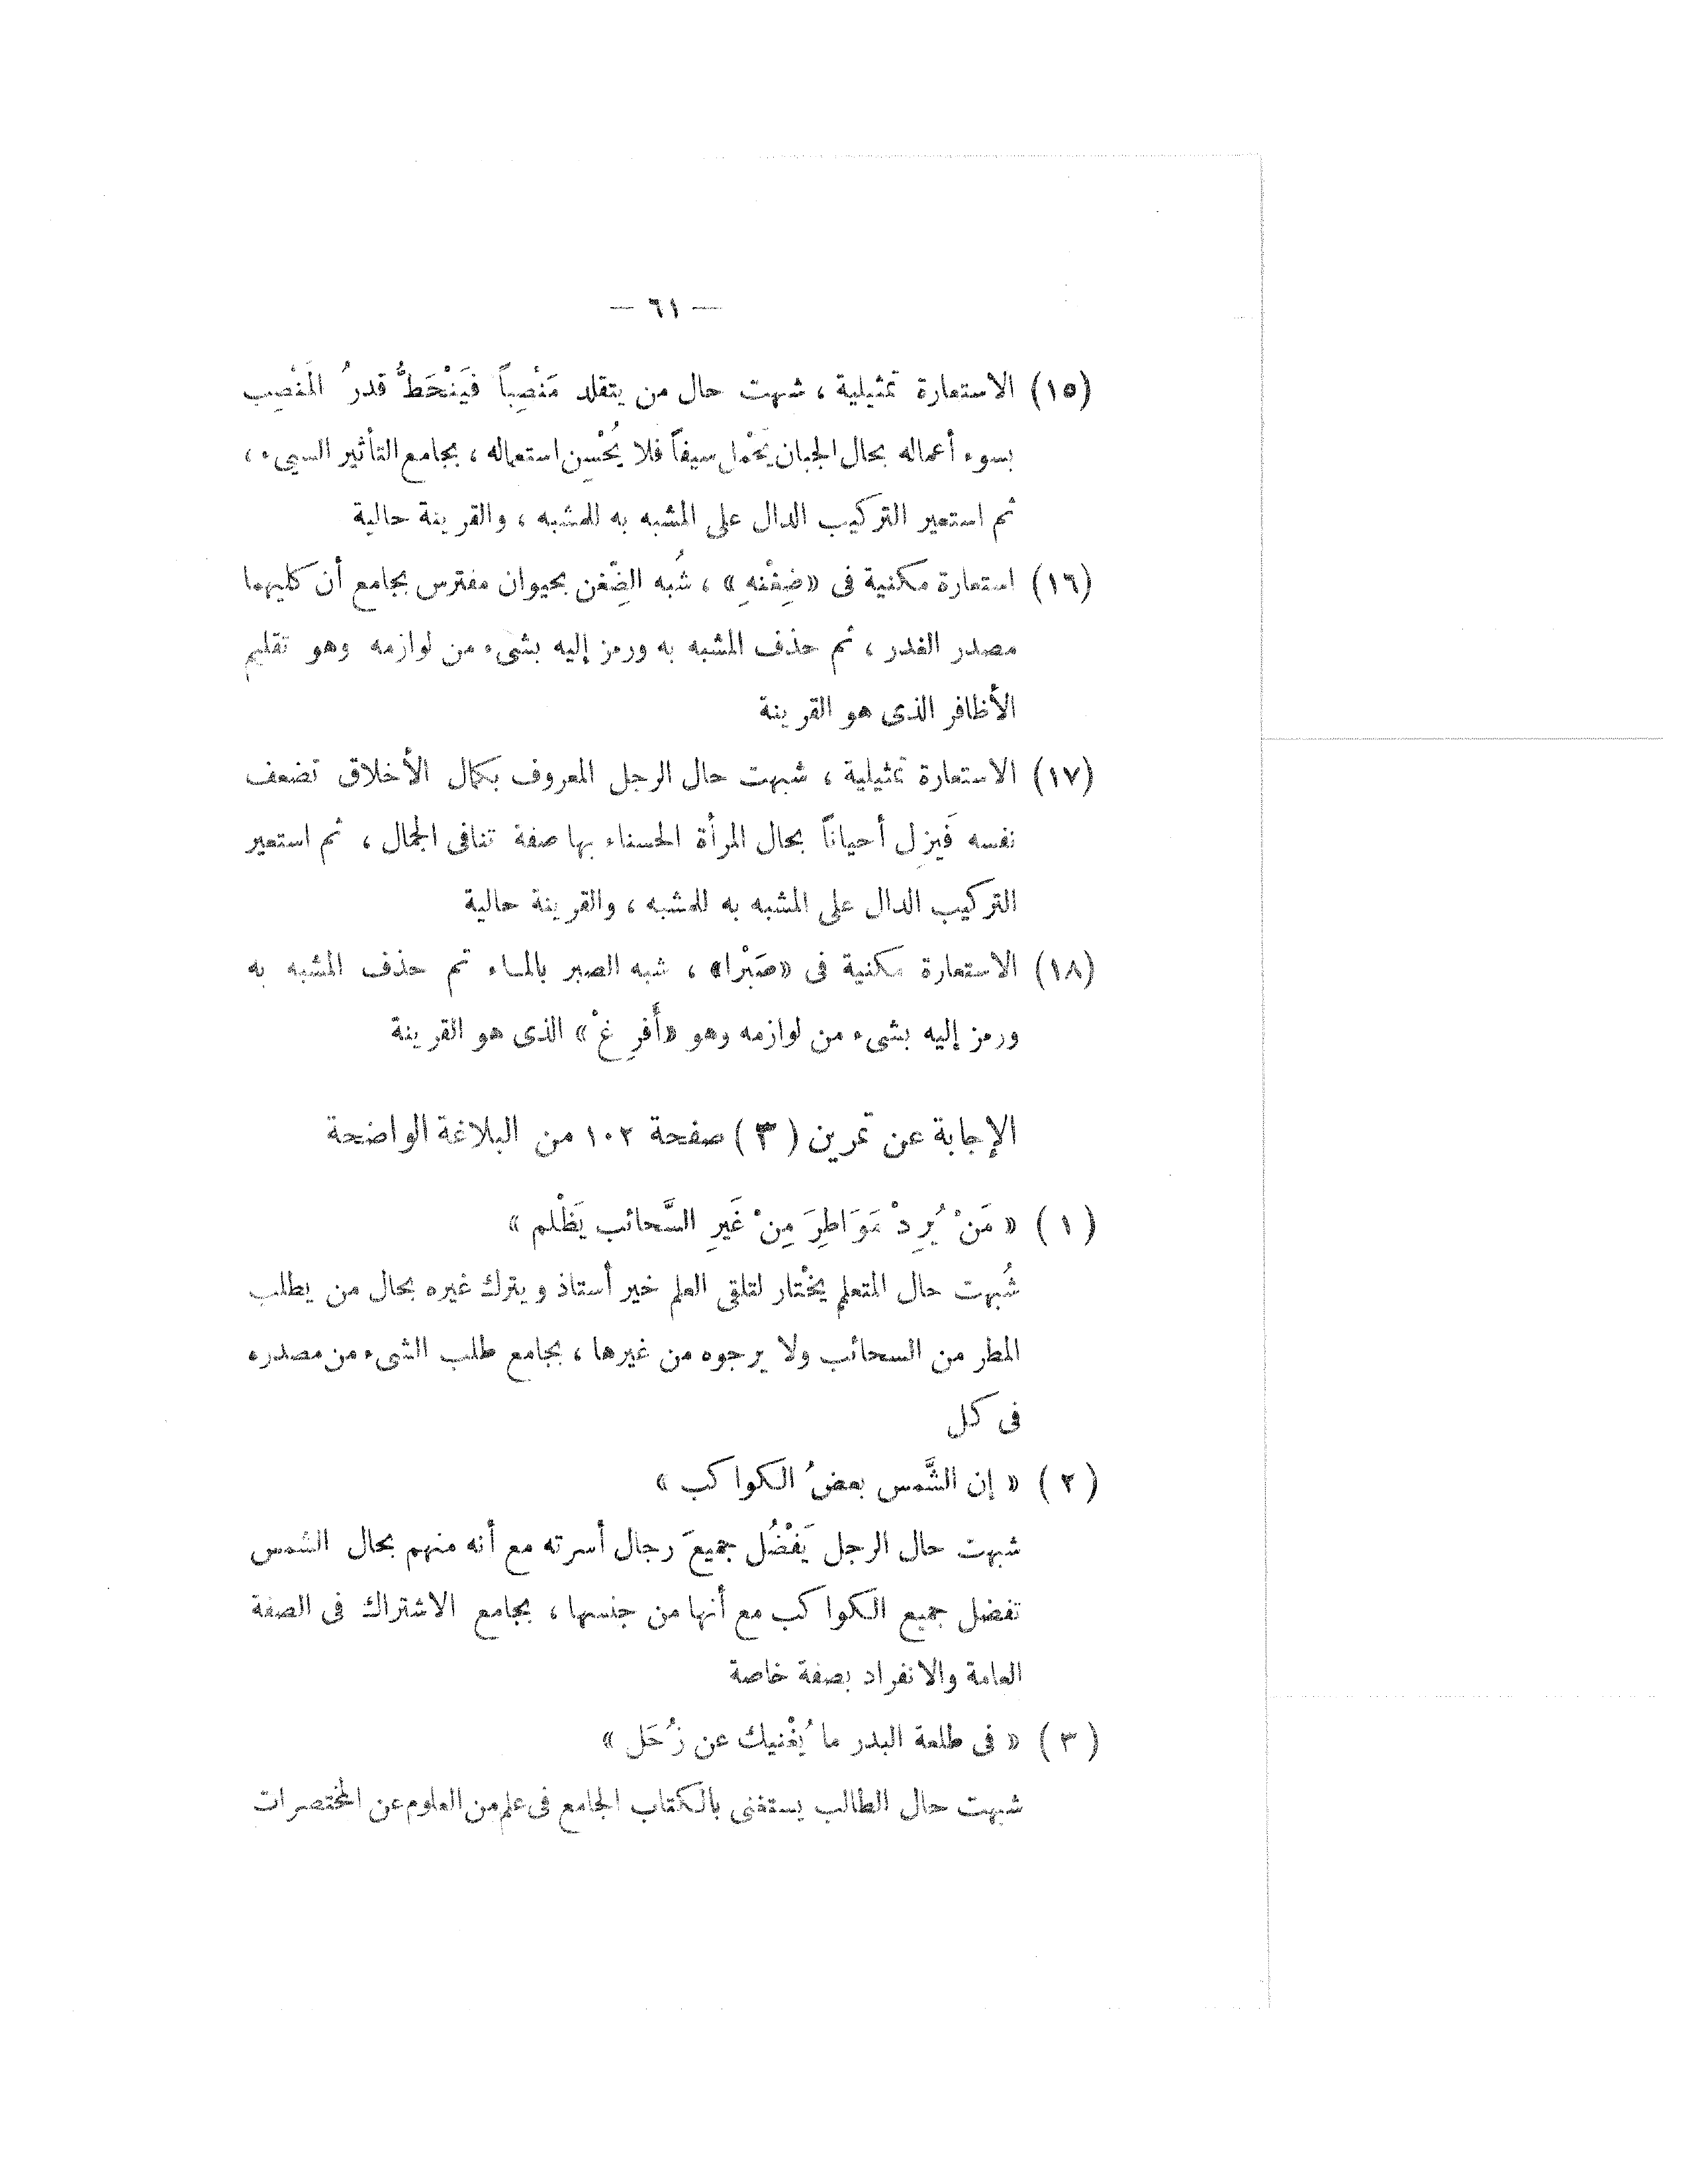 — ٦١ —
(١٥) الاستعارة تمثيلية ، شبهت حال من يتقلد مَنْصِباً فيَنْحَطُّ قدرُ المَنْصِب
بسوء أعماله بحال الجبان يَحْمل سيفاً فلا يُحْسِن استعماله ، بجامع التأثير السيىء ،
ثم استعير التركيب الدال على المشبه به للمشبه ، والقرينة حالية
(١٦) استعارة مكنية فى «ضِغْنهِ» ، شُبه الضِّغن بحيوان مفترس بجامع أن كليهما
مصدر الغدر ، ثم حذف المشبه به ورمز إليه بشىء من لوازمه وهو تقليم
الأظافر الذى هو القرينة
(١٧) الاستعارة تمثيلية ، شبهت حال الرجل المعروف بكمال الأخلاق تضعف
نفسه فَيزِل أحياناً بحال المرأة الحسناء بها صفة تنافى الجمال ، ثم استعير
التركيب الدال على المشبه به للمشبه ، والقرينة حالية
(١٨) الاستعارة مكنية فى «صَبْرا» ، شبه الصبر بالماء ثم حذف المشبه به
ورمز إليه بشىء من لوازمه وهو «أَفرِغْ» الذى هو القرينة
الإجابة عن تمرين (٣) صفحة ١٠٢ من البلاغة الواضحة
(١) « مَنْ يُرِدْ مَوَاطِرَ مِنْ غَيرِ السَّحائب يَظْلم »
شُبهت حال المتعلم يخْتار لتلقى العلم خير أستاذ ويترك غيره بحال من يطلب
المطر من السحائب ولا يرجوه من غيرها ، بجامع طلب الشىء من مصدره
فى كل
(٢) « إن الشَّمس بعضُ الكواكب »
شبهت حال الرجل يَفْضُل جميعَ رجال أسرته مع أنه منهم بحال الشمس
تفضل جميع الكواكب مع أنها من جنسها ، بجامع الاشتراك فى الصفة
العامة والانفراد بصفة خاصة
(٣) « فى طلعة البدر ما يُغْنيك عن زُحَل »
شبهت حال الطالب يستغنى بالكتاب الجامع فى علم من العلوم عن المختصرات